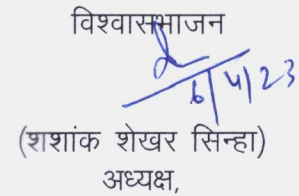 विश्वासभाजन
6/4/23
(शशांक शेखर सिन्हा)
अध्यक्ष,